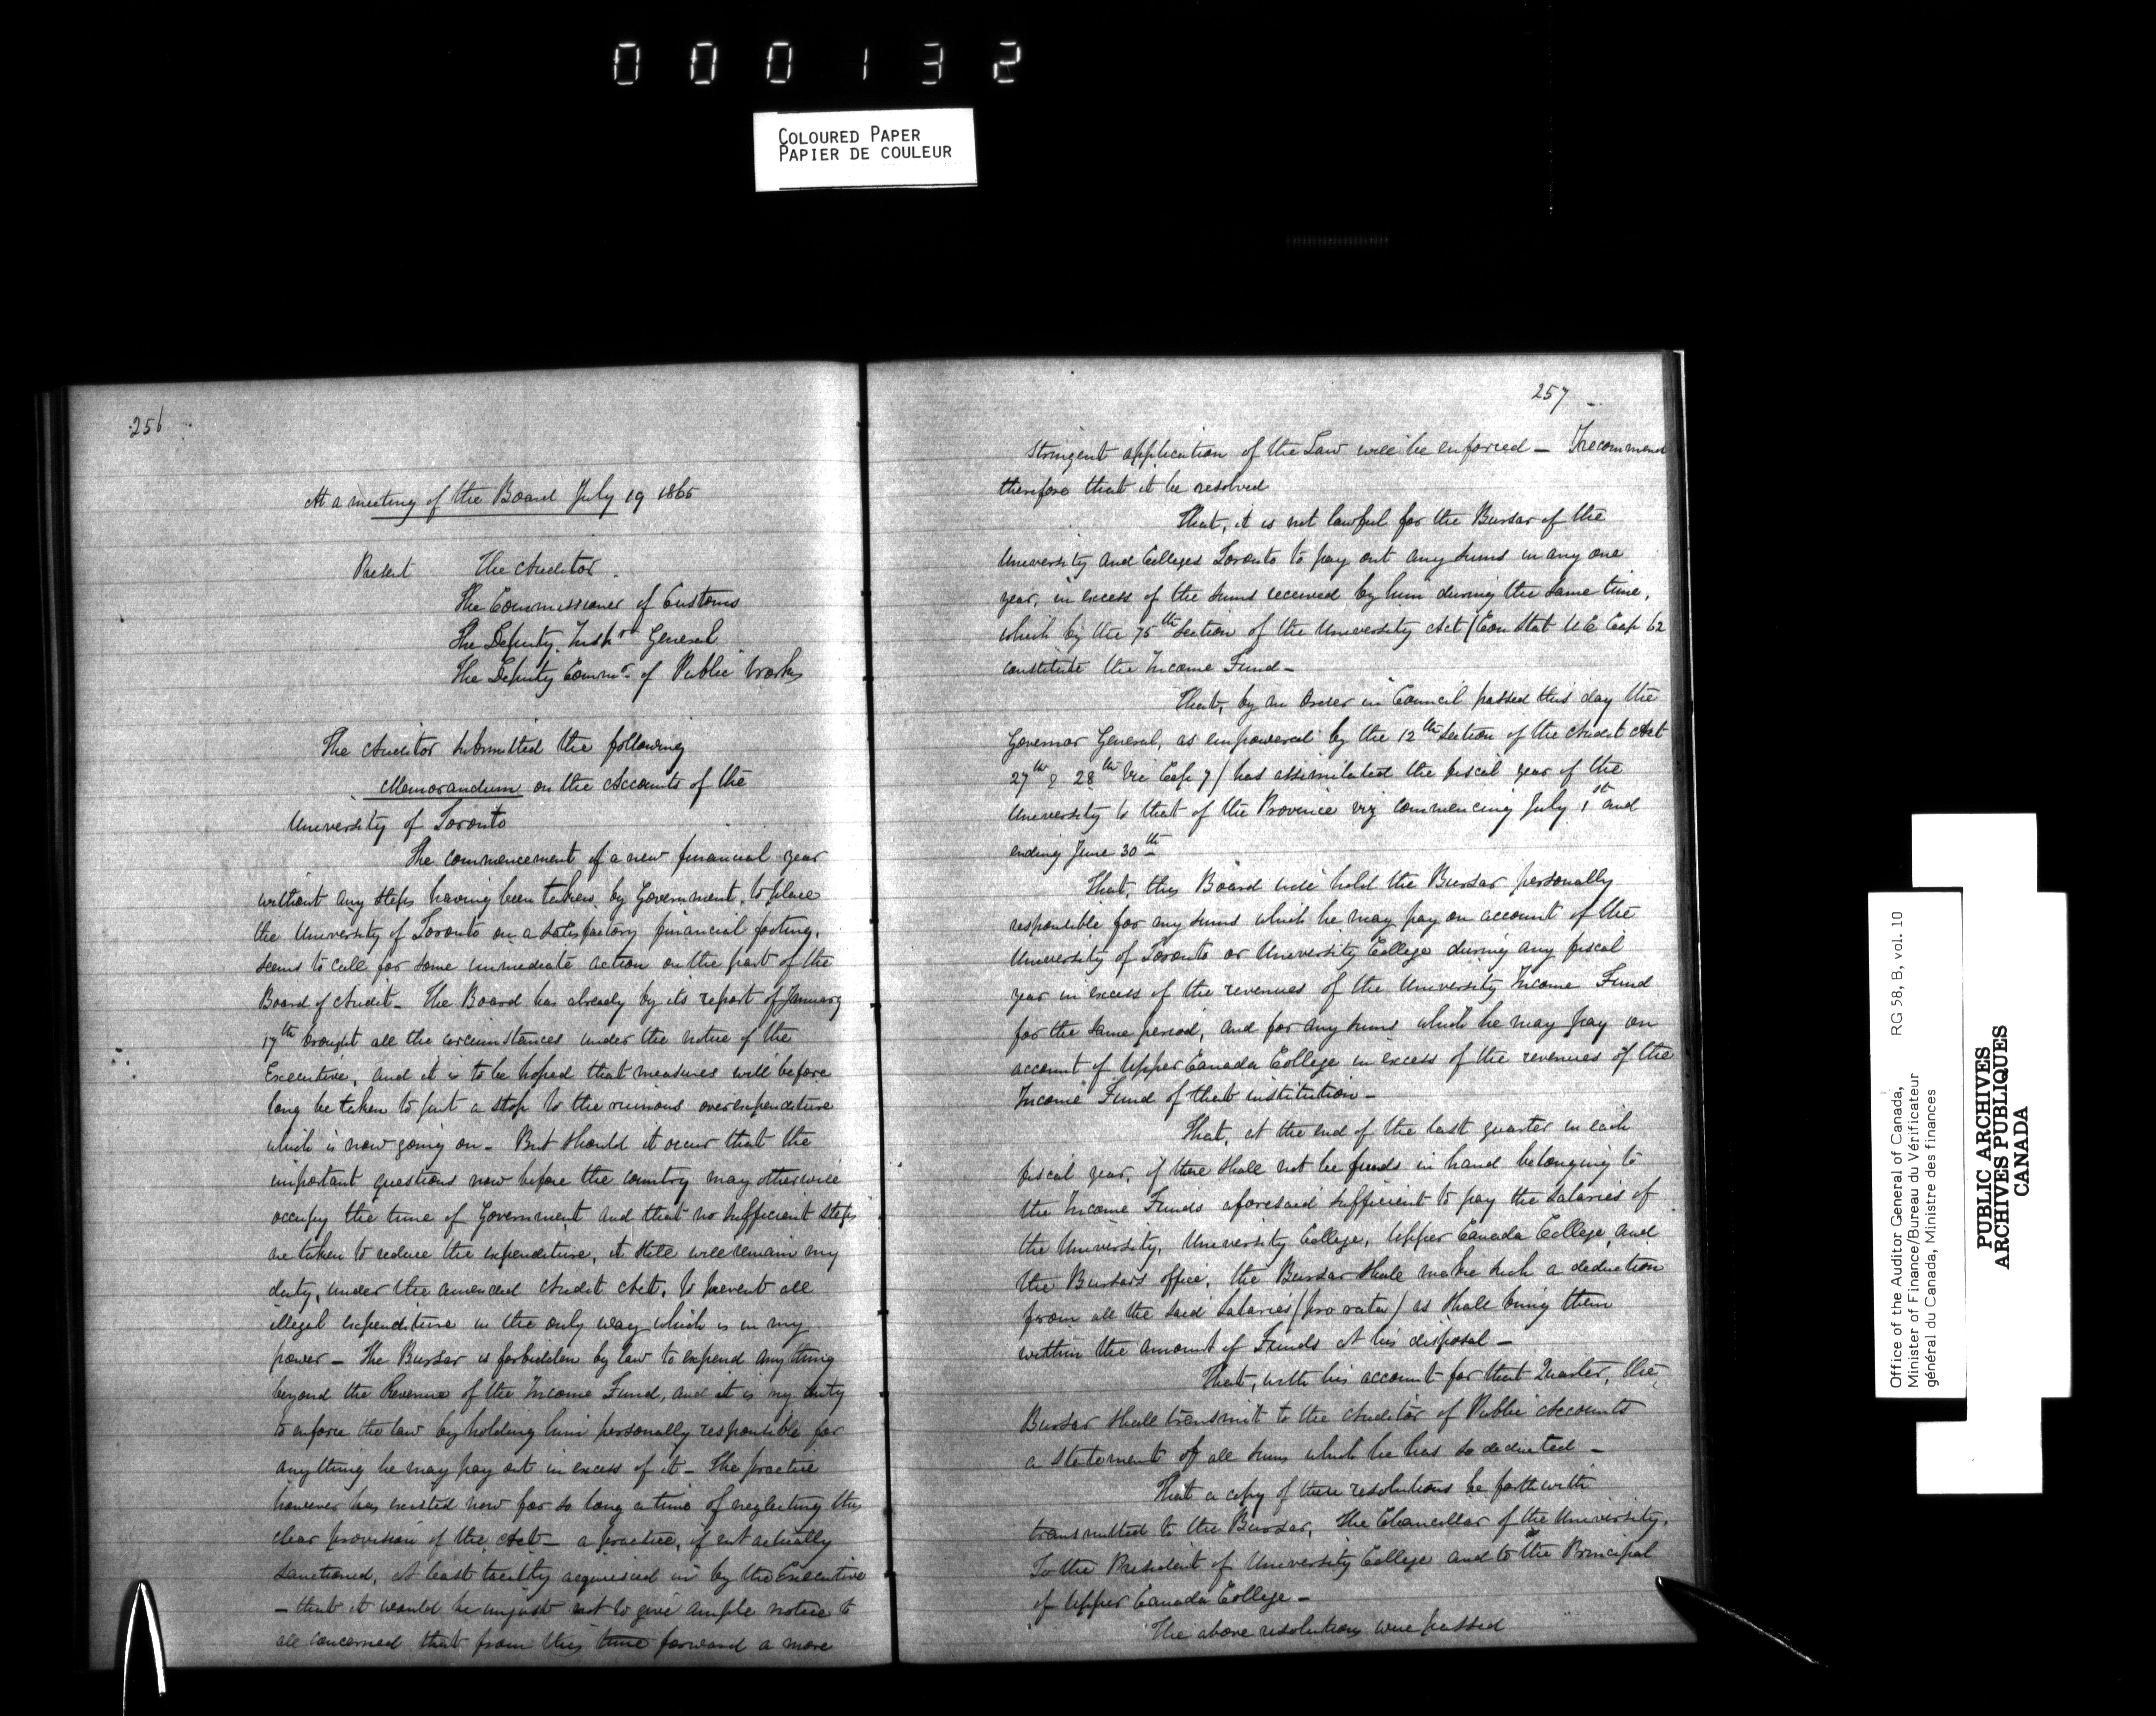 000132
COLOURED PAPER
PAPIER DE COULEUR
256
At a meeting of the Board July 19 1865
Present The Auditor.
The Commissioner of Customs
The Deputy Inspr General
The Deputy Commr of Public Works
The Auditor submitted the following
Memorandum on the Accounts of the
University of Toronto
The commencement of a new financial year
without any steps having been taken by Government, to place
the University of Toronto on a satisfactory financial footing,
seems to call for some immediate action on the part of the
Board of Audit - The Board has already by its report of January
17th brought all the circumstances under the notice of the
Executive, and it is to be hoped that measures will before
long be taken to put a stop to the ruinous overexpenditure
which is now going on - But should it occur that the
important questions now before the country may otherwise
occupy the time of Government and that no sufficient steps
are taken to reduce the expenditure, it still will remain my
duty, under the amended Audit Act, to prevent all
illegal expenditure in the only way which is in my
power - The Bursar is forbidden by law to expend anything
beyond the Revenue of the Income Fund, and it is my duty
to enforce the law by holding him personally responsible for
anything he may pay out in excess of it - The practice
however has existed now for so long a time of neglecting this
clear provision of the Act - a practice, if not actually
sanctioned, at least tacitly acquiesced in by the Executive
- that it would be unjust not to give ample notice to
all concerned that from this time forward a more
257
stringent application of the Law will be enforced - I recommend
therefore that it be resolved
That, it is not lawful for the Bursar of the
University and Colleges Toronto to pay out any sums in any one
year, in excess of the sums received by him during the same time,
which by the 75th Section of the University Act (Con Stat U C Cap 62
constitute the Income Fund -
That, by an Order in Council passed this day the
Governor General, as empowered by the 12th Section of the Audit Act
27th & 28th Vic Cap 7) has assimilated the fiscal year of the
University to that of the Province viz commencing July 1st and
ending June 30th
That, this Board will hold the Bursar personally
responsible for any sums which he may pay on account of the
University of Toronto or University College during any fiscal
year in excess of the revenues of the University Income Fund
for the same period, and for any sums which he may pay on
account of Upper Canada College in excess of the revenues of the
Income Fund of that institution -
That, at the end of the last quarter in each
fiscal year, if there shall not be funds in hand belonging to
the Income Funds aforesaid sufficient to pay the Salaries of
the University, University College, Upper Canada College, and
the Bursars office, the Bursar shall make such a deduction
from all the said Salaries (pro rata) as shall bring them
within the amount of Funds at his disposal -
That, with his account for that Quarter, the
Bursar shall transmit to the Auditor of Public Accounts
a statement of all sums which he has so deducted -
That a copy of these resolutions be forthwith
transmitted to the Bursar, the Chancellor of the University,
To the President of University College and to the Principal
of Upper Canada College -
The above resolutions were passed
Office of the Auditor General of Canada, RG 58, B, vol. 10
Minister of Finance/Bureau du Vérificateur
général du Canada, Ministre des finances
PUBLIC ARCHIVES
ARCHIVES PUBLIQUES
CANADA